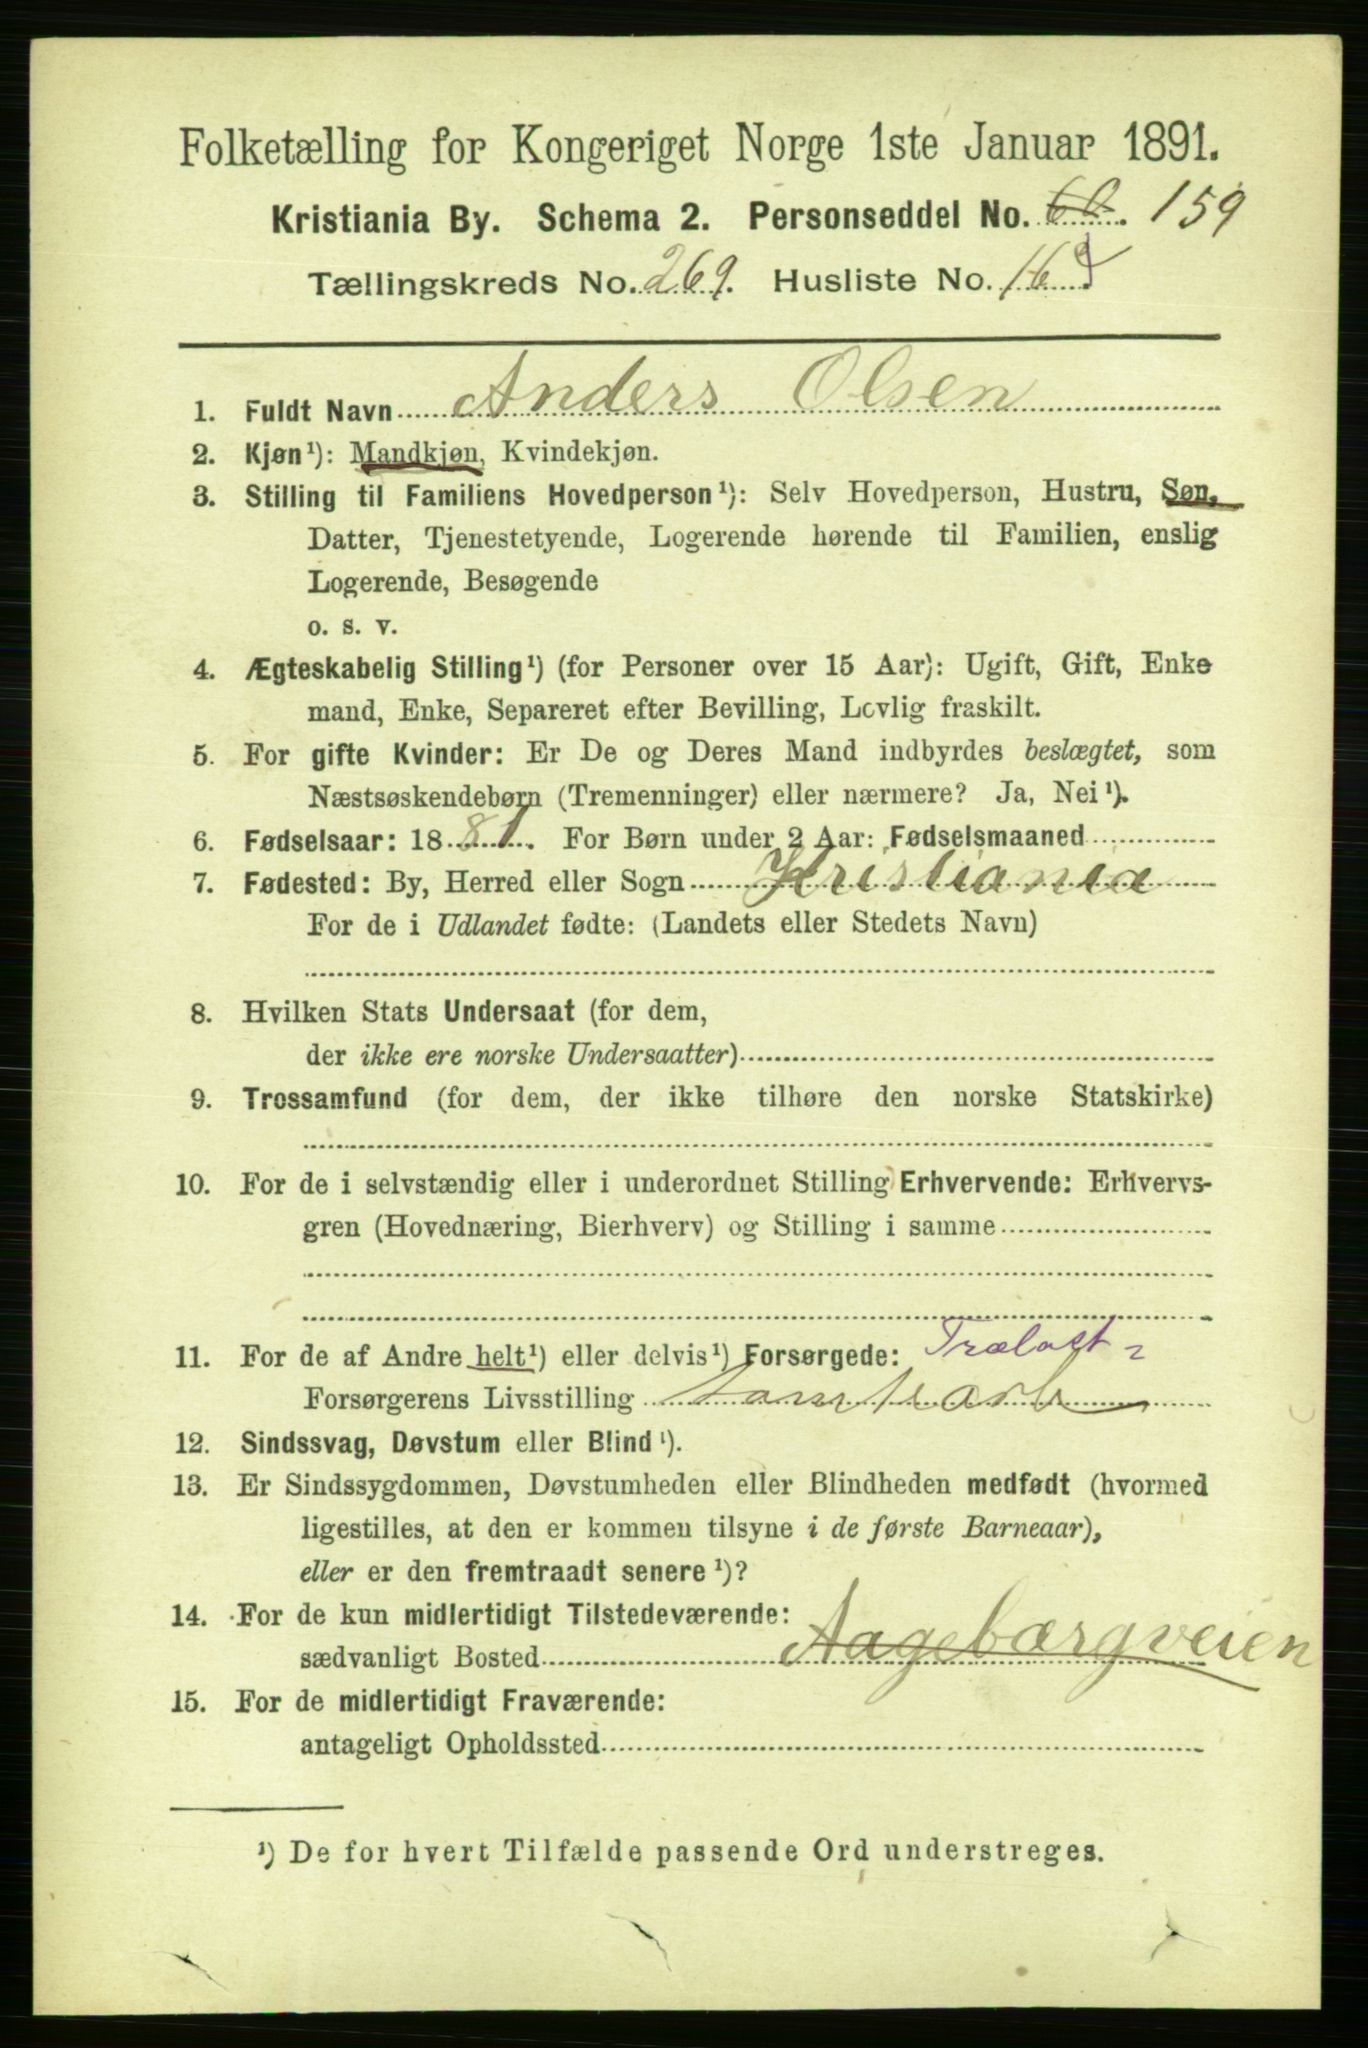 Folketælling for Kongeriget Norge 1ste Januar 1891.
Kristiania By. Schema 2. Personseddel No. 60. 159
Tællingskreds No. 269. Husliste No. 16
1. Fuldt Navn Anders Olsen
2. Kjøn¹): Mandkjøn, Kvindekjøn.
3. Stilling til Familiens Hovedperson¹): Selv Hovedperson, Hustru, Søn,
Datter, Tjenestetyende, Logerende hørende til Familien, enslig
Logerende, Besøgende
o. s. v.
4. Ægteskabelig Stilling¹) (for Personer over 15 Aar): Ugift, Gift, Enke
mand, Enke, Separeret efter Bevilling, Lovlig fraskilt.
5. For gifte Kvinder: Er De og Deres Mand indbyrdes beslægtet, som
Næstsøskendebørn (Tremenninger) eller nærmere? Ja, Nei¹).
6. Fødselsaar: 1881. For Børn under 2 Aar: Fødselsmaaned
7. Fødested: By, Herred eller Sogn Kristiania
For de i Udlandet fødte: (Landets eller Stedets Navn)
8. Hvilken Stats Undersaat (for dem,
der ikke ere norske Undersaatter)
9. Trossamfund (for dem, der ikke tilhøre den norske Statskirke)
10. For de i selvstændig eller i underordnet Stilling Erhvervende: Erhvervs-
gren (Hovednæring, Bierhverv) og Stilling i samme
11. For de af Andre helt¹) eller delvis¹) Forsørgede: Trælast-
Forsørgerens Livsstilling
12. Sindssvag, Døvstum eller Blind¹).
13. Er Sindssygdommen, Døvstumheden eller Blindheden medfødt (hvormed
ligestilles, at den er kommen tilsyne i de første Barneaar),
eller er den fremtraadt senere¹)?
14. For de kun midlertidigt Tilstedeværende:
sædvanligt Bosted Aagebærgveien
15. For de midlertidigt Fraværende:
antageligt Opholdssted
¹) De for hvert Tilfælde passende Ord understreges.